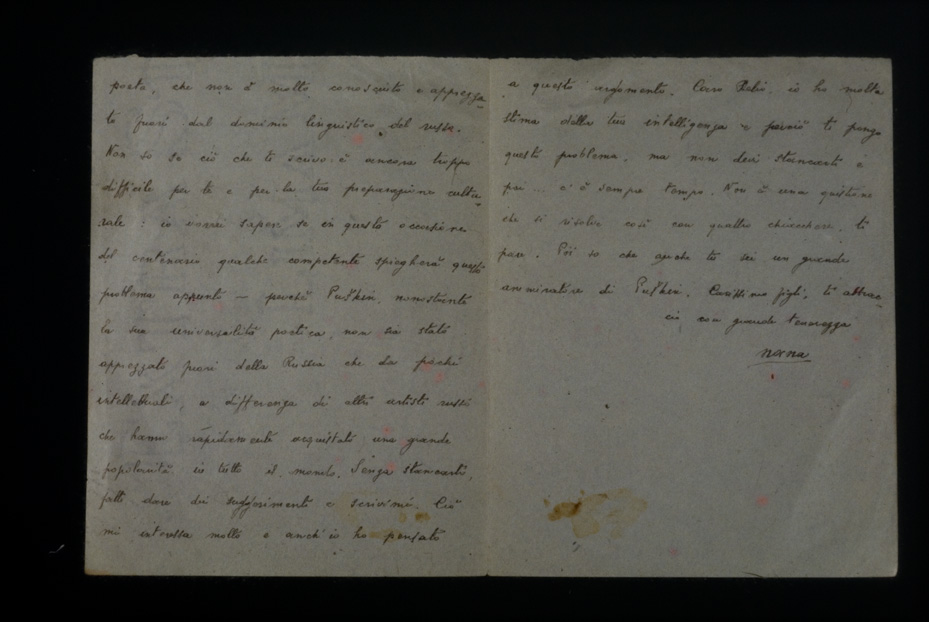 poeta, che non è molto conosciuto e apprezza-
to fuori dal dominio linguistico del russo.
Non so se ciò che ti scrivo è ancora troppo
difficile per te e per la tua preparazione cultu-
rale: io vorrei sapere se in questa occasione
del centenario qualche competente spiegherà questo
problema appunto — perchè Puškin, nonostante
la sua universalità poetica, non sia stato
apprezzato fuori della Russia che da pochi
intellettuali, a differenza di altri artisti russi
che hanno rapidamente acquistato una grande
popolarità in tutto il mondo. Senza stancarti,
fatti dare dei suggerimenti e scrivimi. Ciò
mi interessa molto e anch'io ho pensato
a questo argomento. Caro Delio, io ho molta
stima della tua intelligenza e perciò ti pongo
questo problema, ma non devi stancarti e
poi... c'è sempre tempo. Non è una quistione
che si risolve così con quattro chiacchere, ti
pare. Poi so che anche tu sei un grande
ammiratore di Puškin. Carissimo figli, ti abbrac-
cio con grande tenerezza
nonna